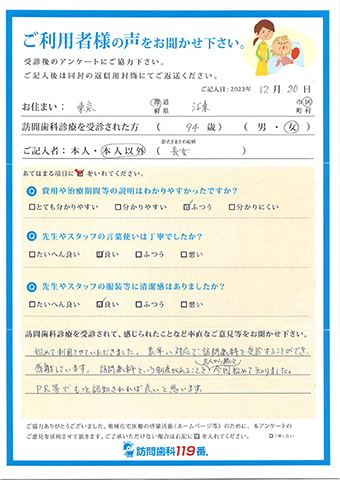 ご利用者様の声をお聞かせ下さい。
受診後のアンケートにご協力下さい。
ご記入後は同封の返信用封筒にてご返送ください。
ご記入日：2023年 12月 20日
お住まい： 東京 都道府県 江東 市区町村
訪問歯科診療を受診された方 （ 94 歳） （男・女）
ご記入者：本人・本人以外（ 患者さまとの続柄 長女 ）
あてはまる項目に☑をいれてください。
Q 費用や治療期間等の説明はわかりやすかったですか？
□とても分かりやすい □分かりやすい ☑ふつう □分かりにくい
Q 先生やスタッフの言葉使いは丁寧でしたか？
□たいへん良い ☑良い □ふつう □悪い
Q 先生やスタッフの服装等に清潔感はありましたか？
□たいへん良い ☑良い □ふつう □悪い
訪問歯科診療を受診されて、感じられたことなど率直なご意見等をお聞かせ下さい。
始めて利用させていただきました。素早い対応で訪問歯科を受診することができ、
感謝しています。訪問歯科という制度があることを今回始めて知りました。
PR等でもっと認知されれば良いと思います。
ご協力ありがとうございました。地域在宅医療の啓蒙活動（ホームページ等）のために、本アンケートの
ご意見を活用させて頂きます。ご了承いただけない場合は右記に☑を入れてください。
訪問歯科119番。